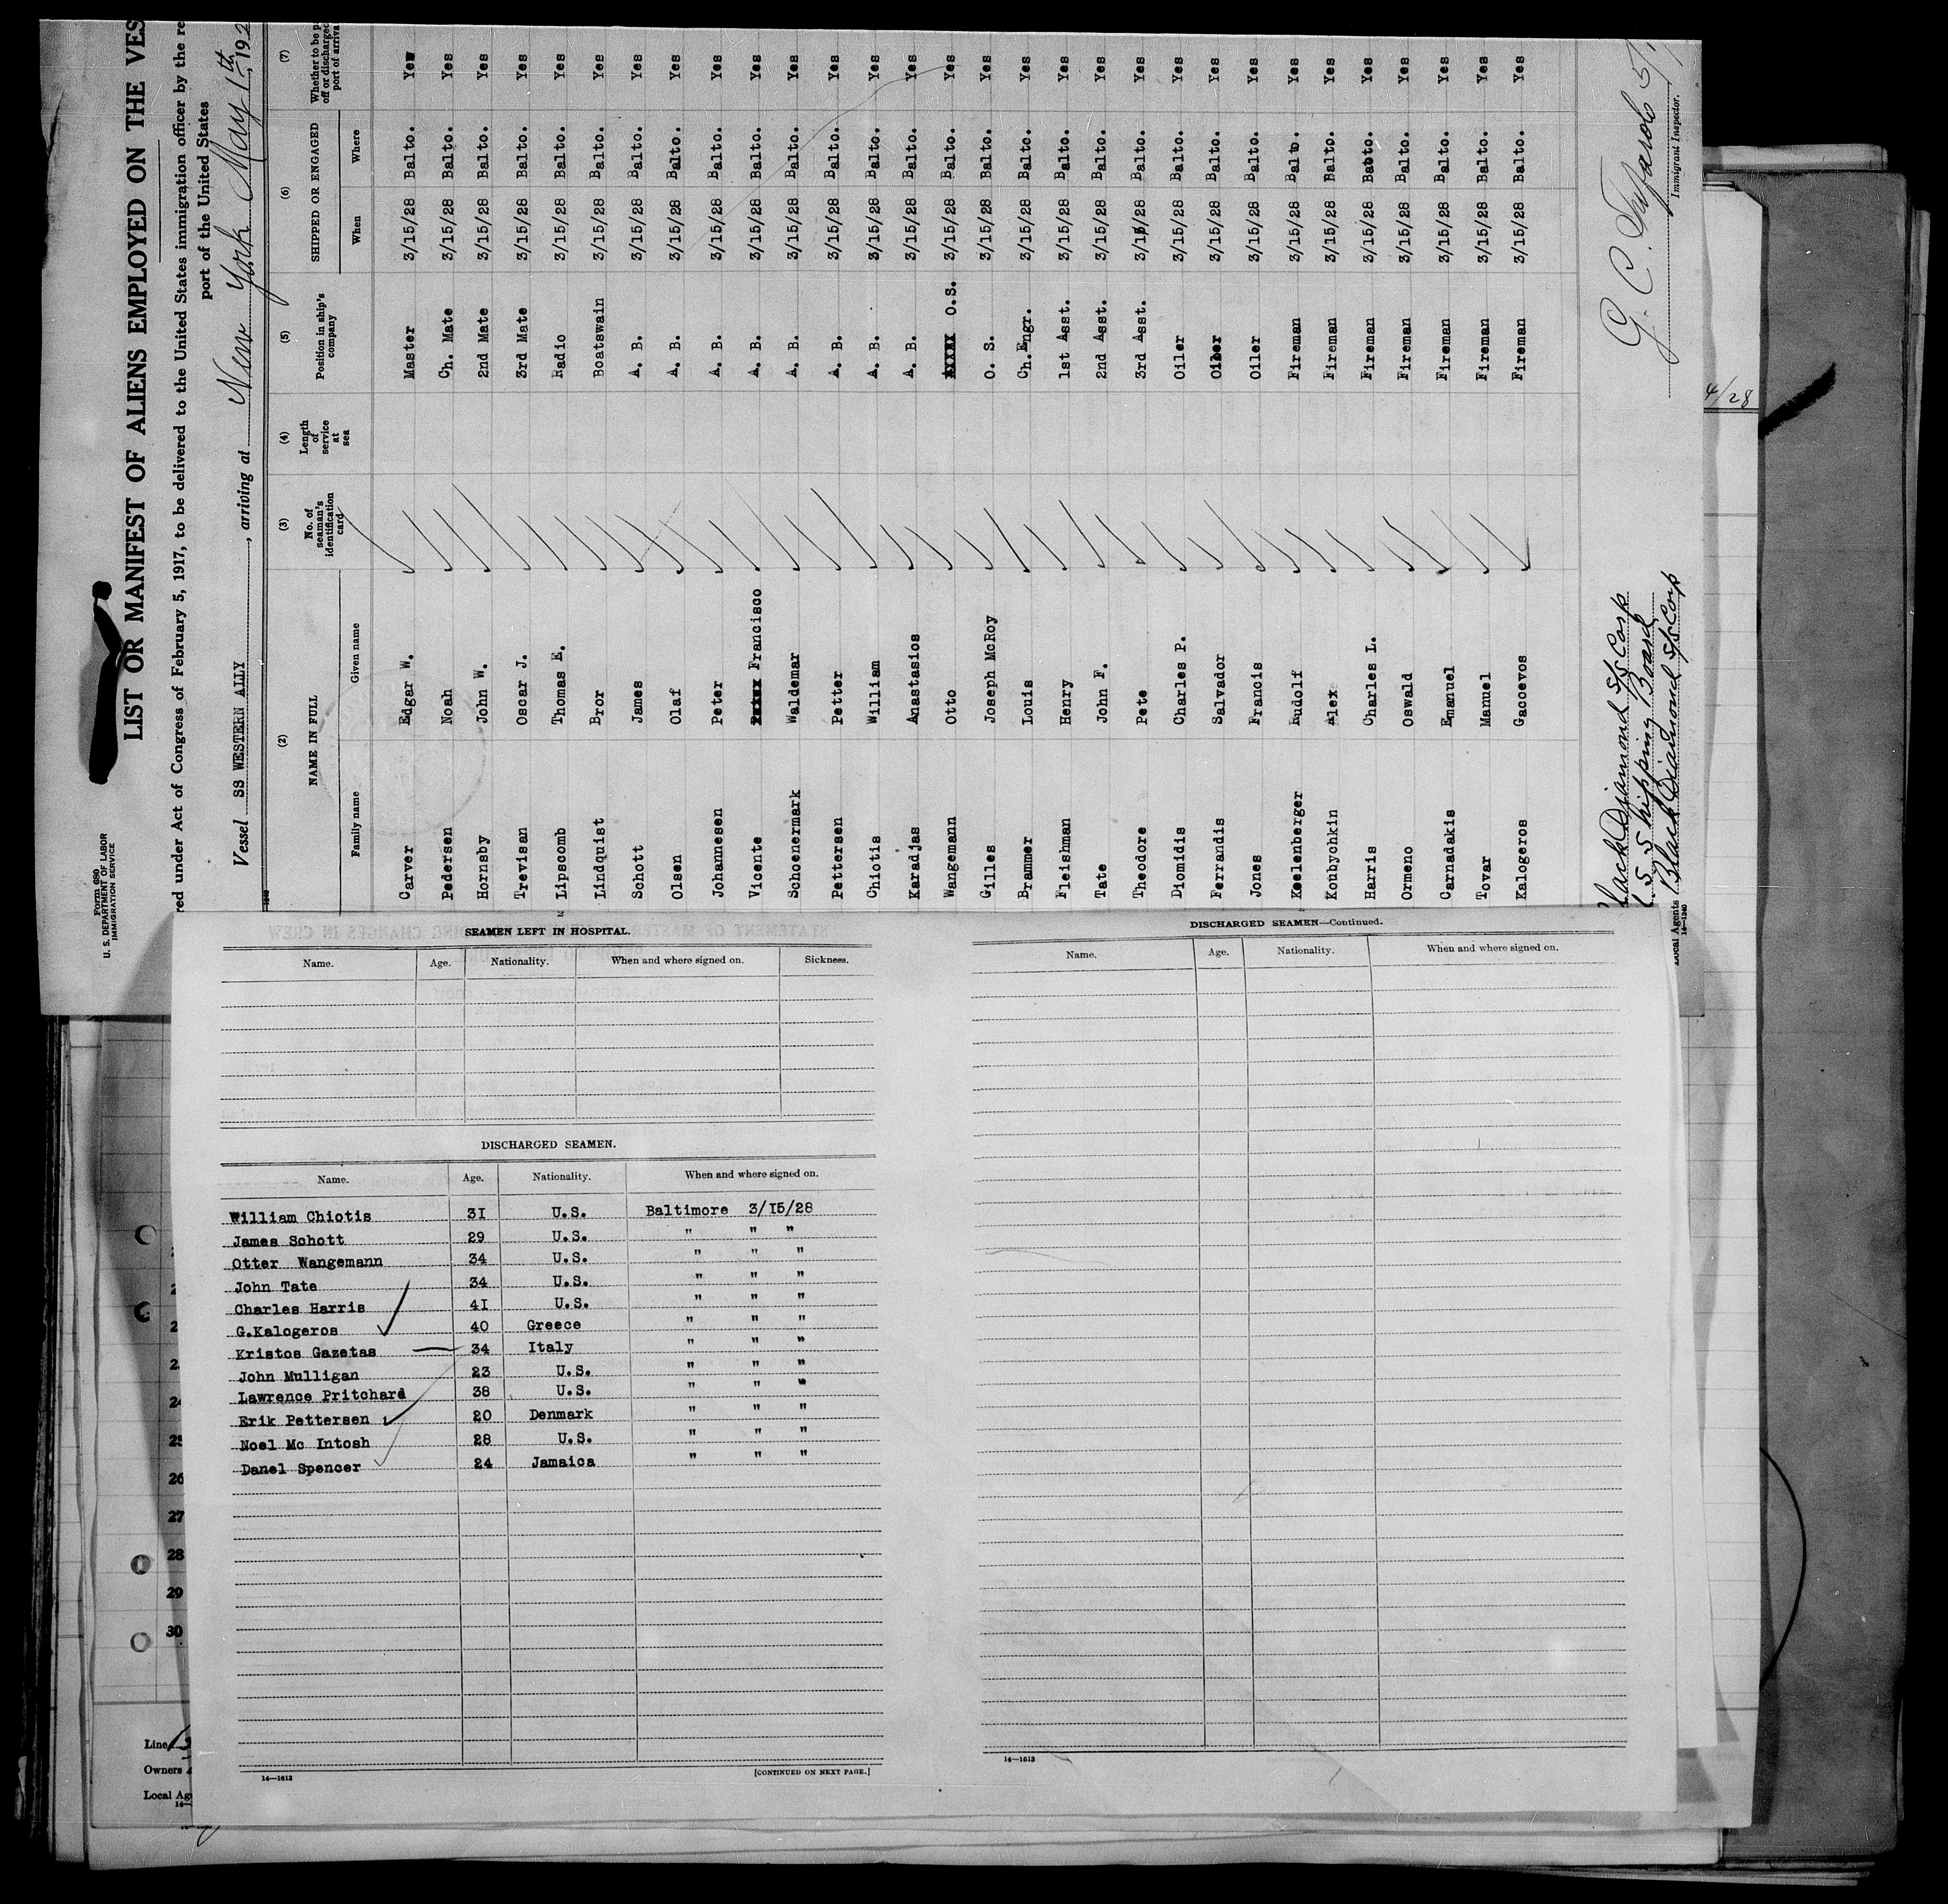 Form 680
U. S. DEPARTMENT OF LABOR
IMMIGRATION SERVICE
LIST OR MANIFEST OF ALIENS EMPLOYED ON THE VES
red under Act of Congress of February 5, 1917, to be delivered to the United States immigration officer by the re
port of the United States
Vessel SS WESTERN ALLY, arriving at New York May 1th, 192
(2) (3) (4) (5) (6) (7)
NAME IN FULL No. of seaman's identification card Length of service at sea Position in ship's company SHIPPED OR ENGAGED Whether to be p off or discharged port of arriva
Family name Given name When Where
Carver Edgar W. Master 3/15/28 Balto. Yes
Pedersen Noah Ch. Mate 3/15/28 Balto. Yes
Hornsby John W. 2nd Mate 3/15/28 Balto. Yes
Trevisan Oscar J. 3rd Mate 3/15/28 Balto. Yes
Lipscomb Thomas E. Radio 3/15/28 Balto. Yes
Lindquist Bror Boatswain 3/15/28 Balto. Yes
Schott James A. B. 3/15/28 Balto. Yes
Olsen Olaf A. B. 3/15/28 Balto. Yes
Johannesen Peter A. B. 3/15/28 Balto. Yes
Vicente Francisco A. B. 3/15/28 Balto. Yes
Schoenermark Waldemar A. B. 3/15/28 Balto. Yes
Pettersen Petter A. B. 3/15/28 Balto. Yes
Chiotis William A. B. 3/15/28 Balto. Yes
Karadjas Anastasios A. B. 3/15/28 Balto. Yes
Wangemann Otto O.S. 3/15/28 Balto. Yes
Gilles Joseph McRoy O. S. 3/15/28 Balto. Yes
Brammer Louis Ch.Engr. 3/15/28 Balto. Yes
Fleishman Henry 1st Asst. 3/15/28 Balto. Yes
Tate John F. 2nd Asst. 3/15/28 Balto. Yes
Theodore Pete 3rd Asst. 3/15/28 Balto. Yes
Diomidis Charles P. Oiler 3/15/28 Balto. Yes
Ferrandis Salvador Oiler 3/15/28 Balto. Yes
Jones Francis Oiler 3/15/28 Balto. Yes
Keelenberger Rudolf Fireman 3/15/28 Balto. Yes
Koubychkin Alex Fireman 3/15/28 Balto. Yes
Harris Charles L. Fireman 3/15/28 Balto. Yes
Ormeno Oswald Fireman 3/15/28 Balto. Yes
Carnadakis Emanuel Fireman 3/15/28 Balto. Yes
Tovar Manuel Fireman 3/15/28 Balto. Yes
Kalogeros Gacoevos Fireman 3/15/28 Balto. Yes
lack Diamond S/S Corp
S S Shipping Board
Local Agents Black Diamond S/S Corp
14—1240
G. C.
Immigrant Inspector.
4/28
SEAMEN LEFT IN HOSPITAL.
Name. Age. Nationality. When and where signed on. Sickness.
DISCHARGED SEAMEN.
Name. Age. Nationality. When and where signed on.
William Chiotis 31 U.S. Baltimore 3/15/28
James Schott 29 U.S. " " "
Otter Wangemann 34 U.S. " " "
John Tate 34 U.S. " " "
Charles Harris 41 U.S. " " "
G.Kalogeros 40 Greece " " "
Kristos Gazetas 34 Italy " " "
John Mulligan 23 U.S. " " "
Lawrence Pritchard 38 U.S. " " "
Erik Pettersen 20 Denmark " " "
Noel Mc Intosh 28 U.S. " " "
Danel Spencer 24 Jamaica " " "
14—1613 [CONTINUED ON NEXT PAGE.]
DISCHARGED SEAMEN—Continued.
Name. Age. Nationality. When and where signed on.
14—1613
24
25
26
27
28
29
30
Line
Owners
Local Ag